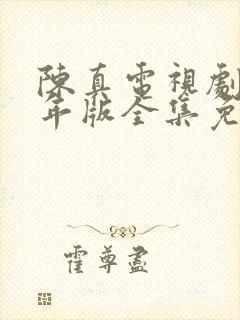 陳真電視劇
年版全集免
霍尊盡